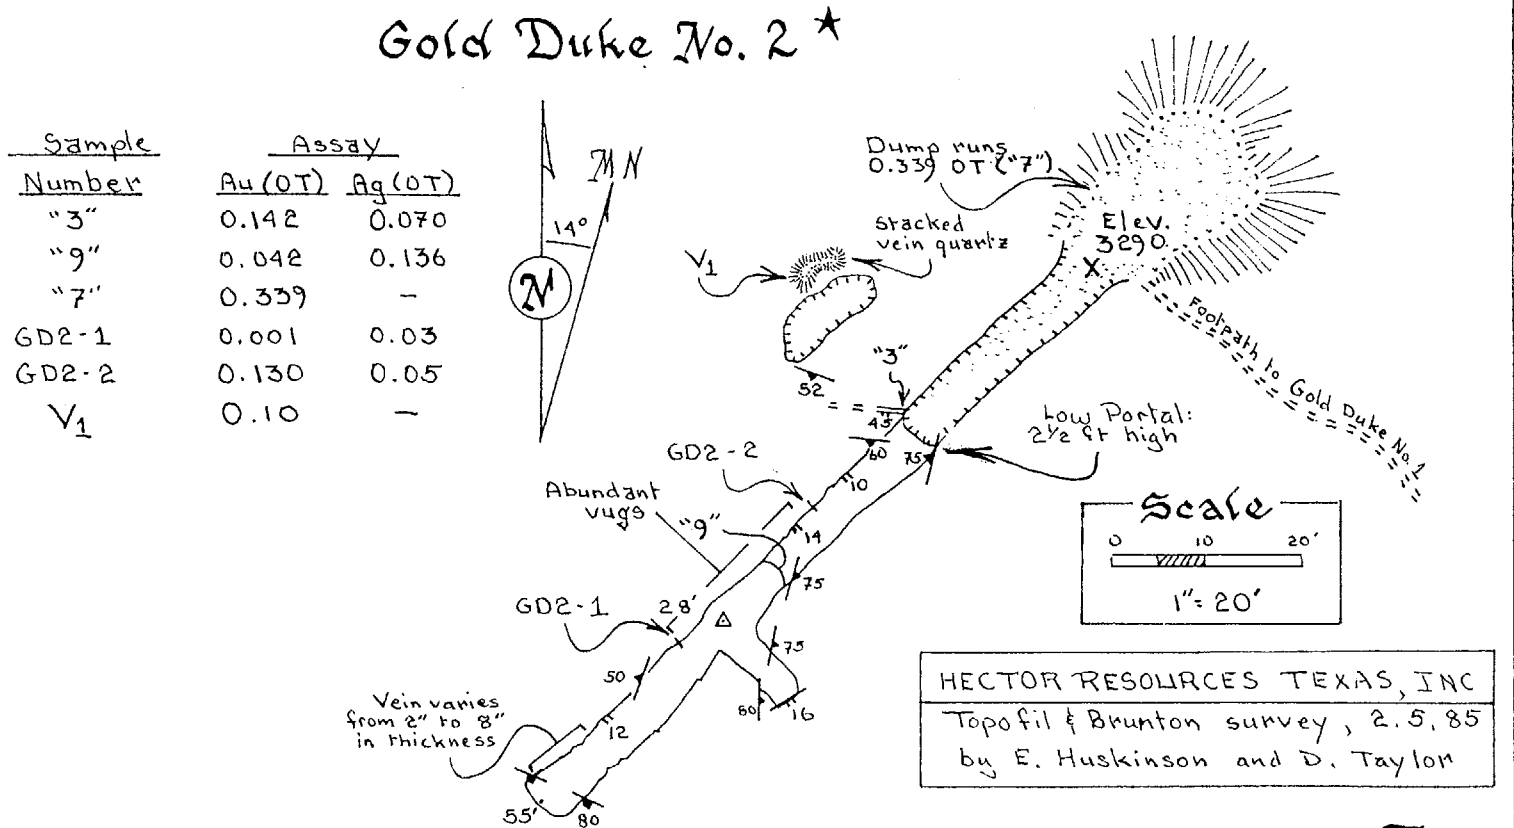 Gold Duke No. 2 ★
Sample Assay
Number Au (OT) Ag (OT)
"3" 0.142 0.070
"9" 0.042 0.136
"7" 0.339 –
GD2-1 0.001 0.03
GD2-2 0.130 0.05
V1 0.10 –
MN
14°
N
Dump runs
0.339 OT ("7")
Stacked
vein quartz
V1
Elev.
3290
X
Footpath to Gold Duke No. 1
"3"
52
45
60
75
Low Portal:
2½ ft high
GD2-2
10
Abundant
vugs
"9"
14
75
GD2-1
28'
75
50
80
16
12
Vein varies
from 2" to 8"
in thickness
55'
80
Scale
0 10 20'
1" = 20'
HECTOR RESOURCES TEXAS, INC
Topofil & Brunton survey, 2.5.85
by E. Huskinson and D. Taylor